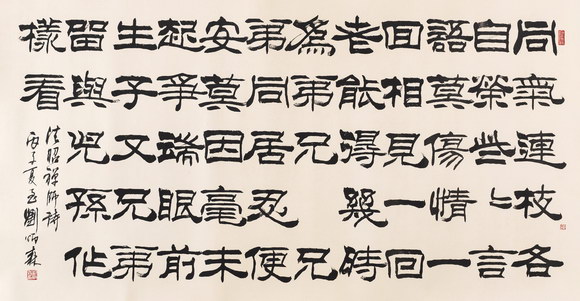 同氣連枝各
自榮些〻言
語莫傷情一
回相見一回
老能得幾時
為弟兄兄
弟同居忍便
安莫因毫末
起爭端眼前
生子又兄弟
留與兒孫作
樣看
法昭禪師詩
丙子夏劉炳森